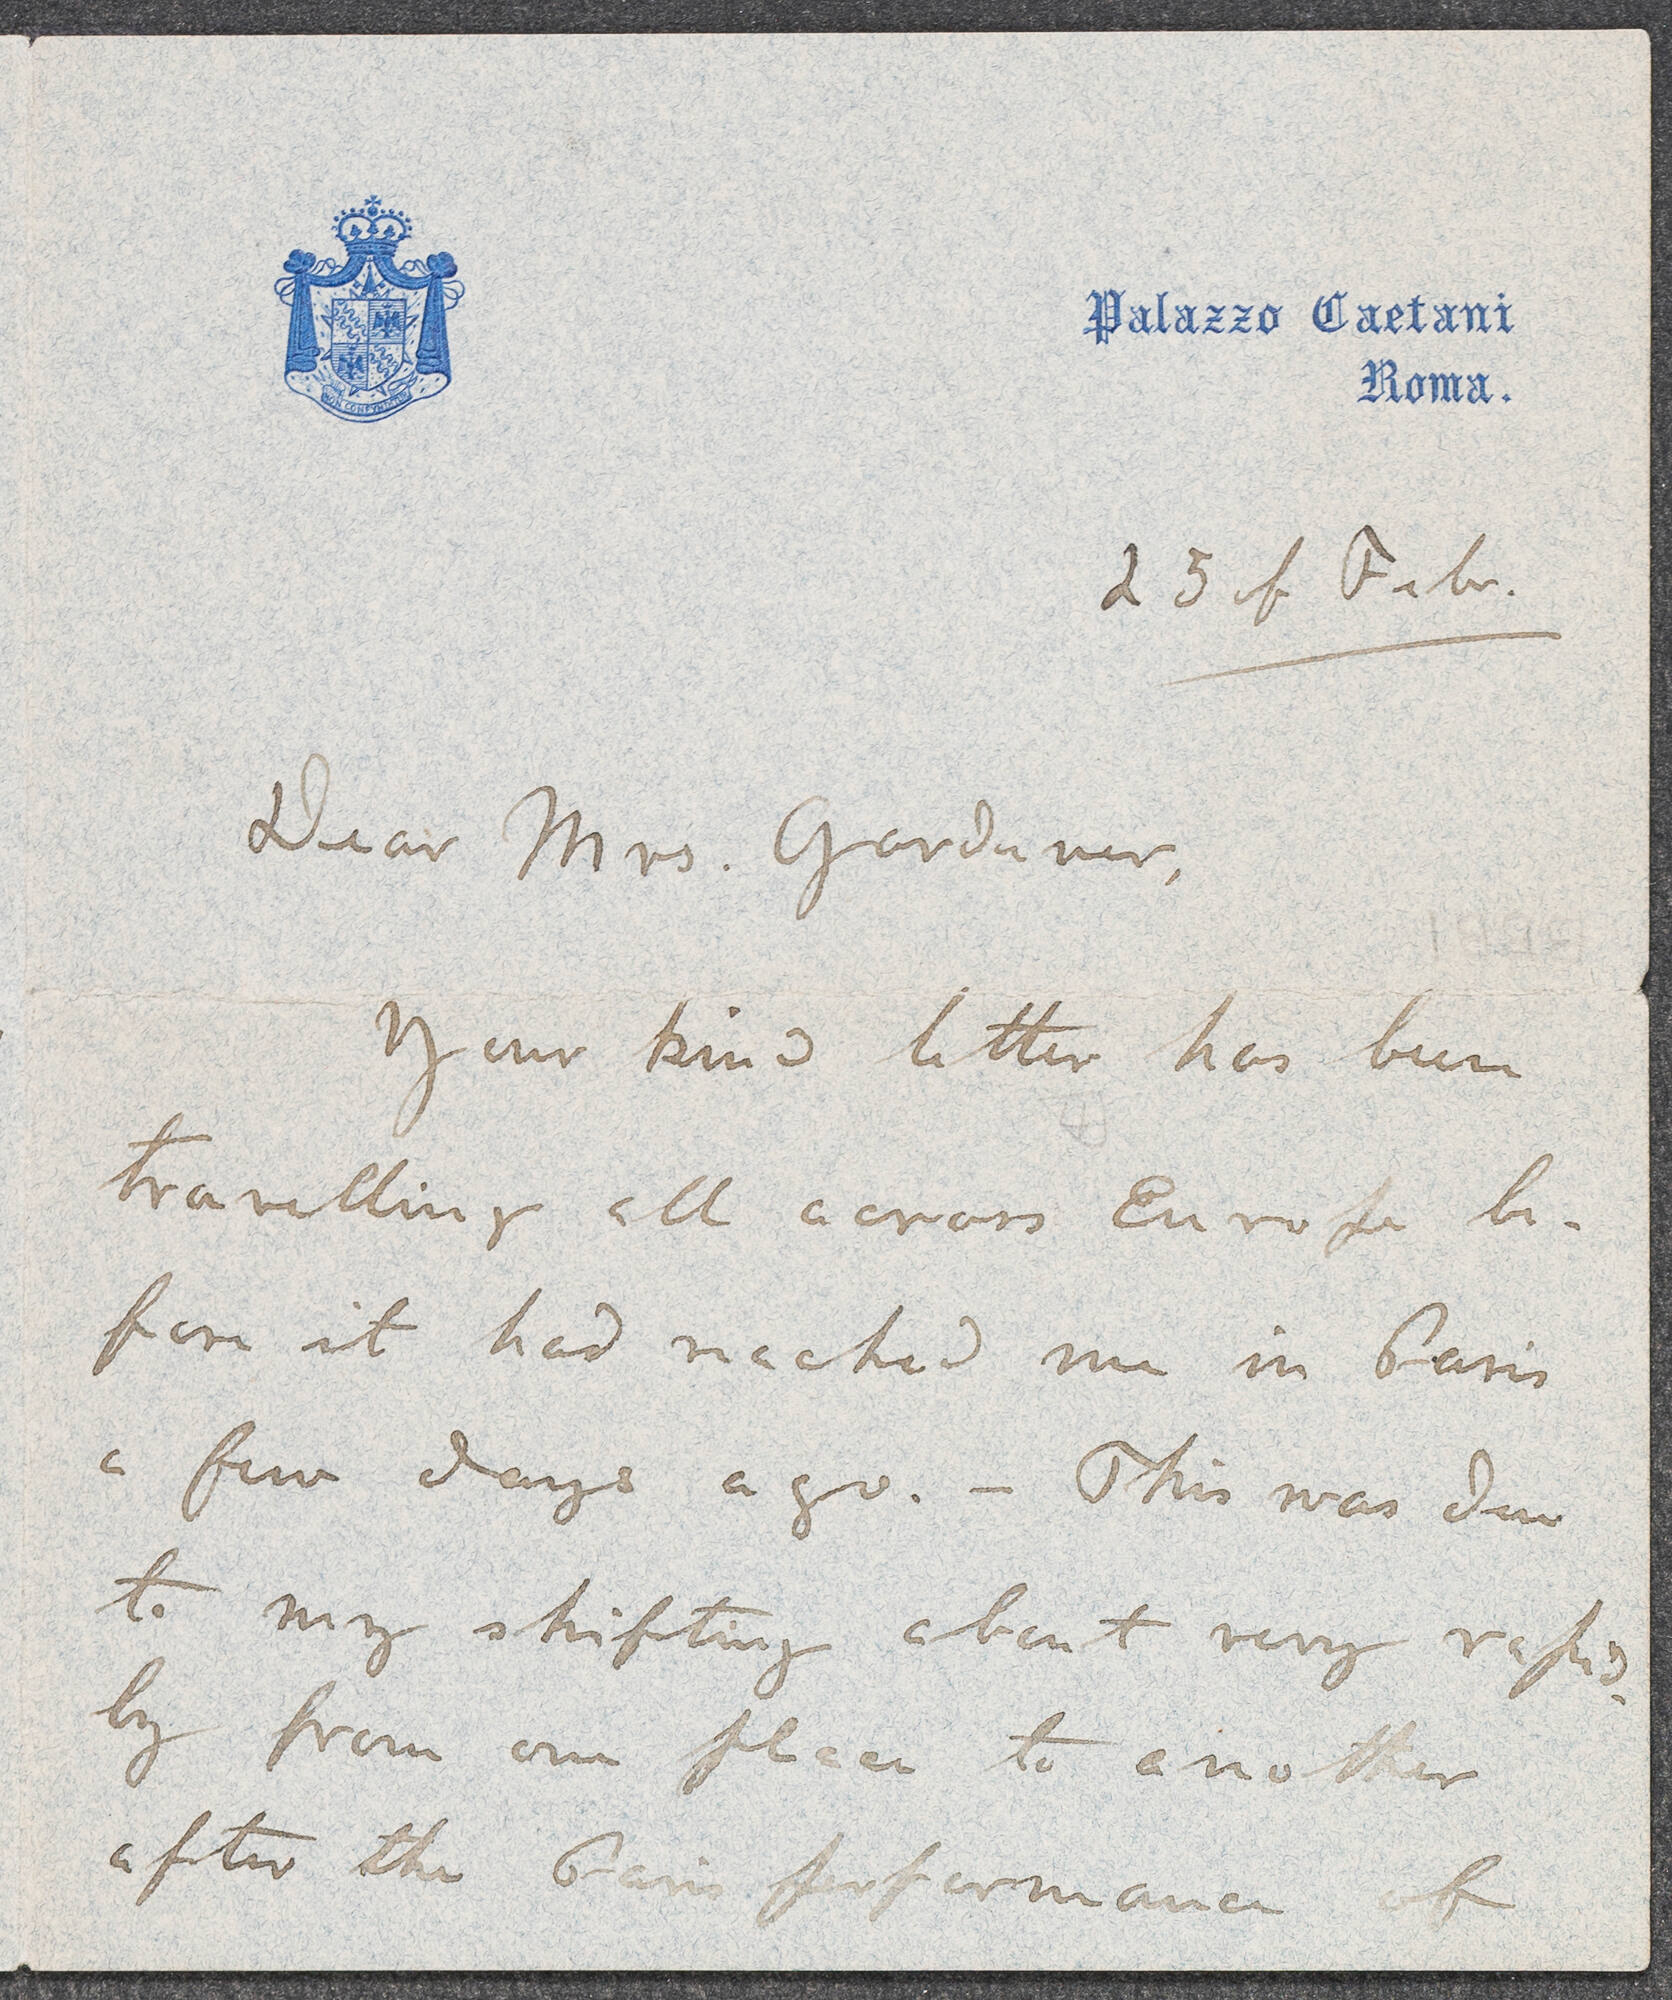 NON CONFVNDITVR
Palazzo Caetani
Roma.
25 of Febr.
Dear Mrs. Gardner,
Your kind letter has been
travelling all across Europe be-
fore it had reached me in Paris
a few days ago. – This was due
to my shifting about very rapid-
ly from one place to another
after the Paris performance of